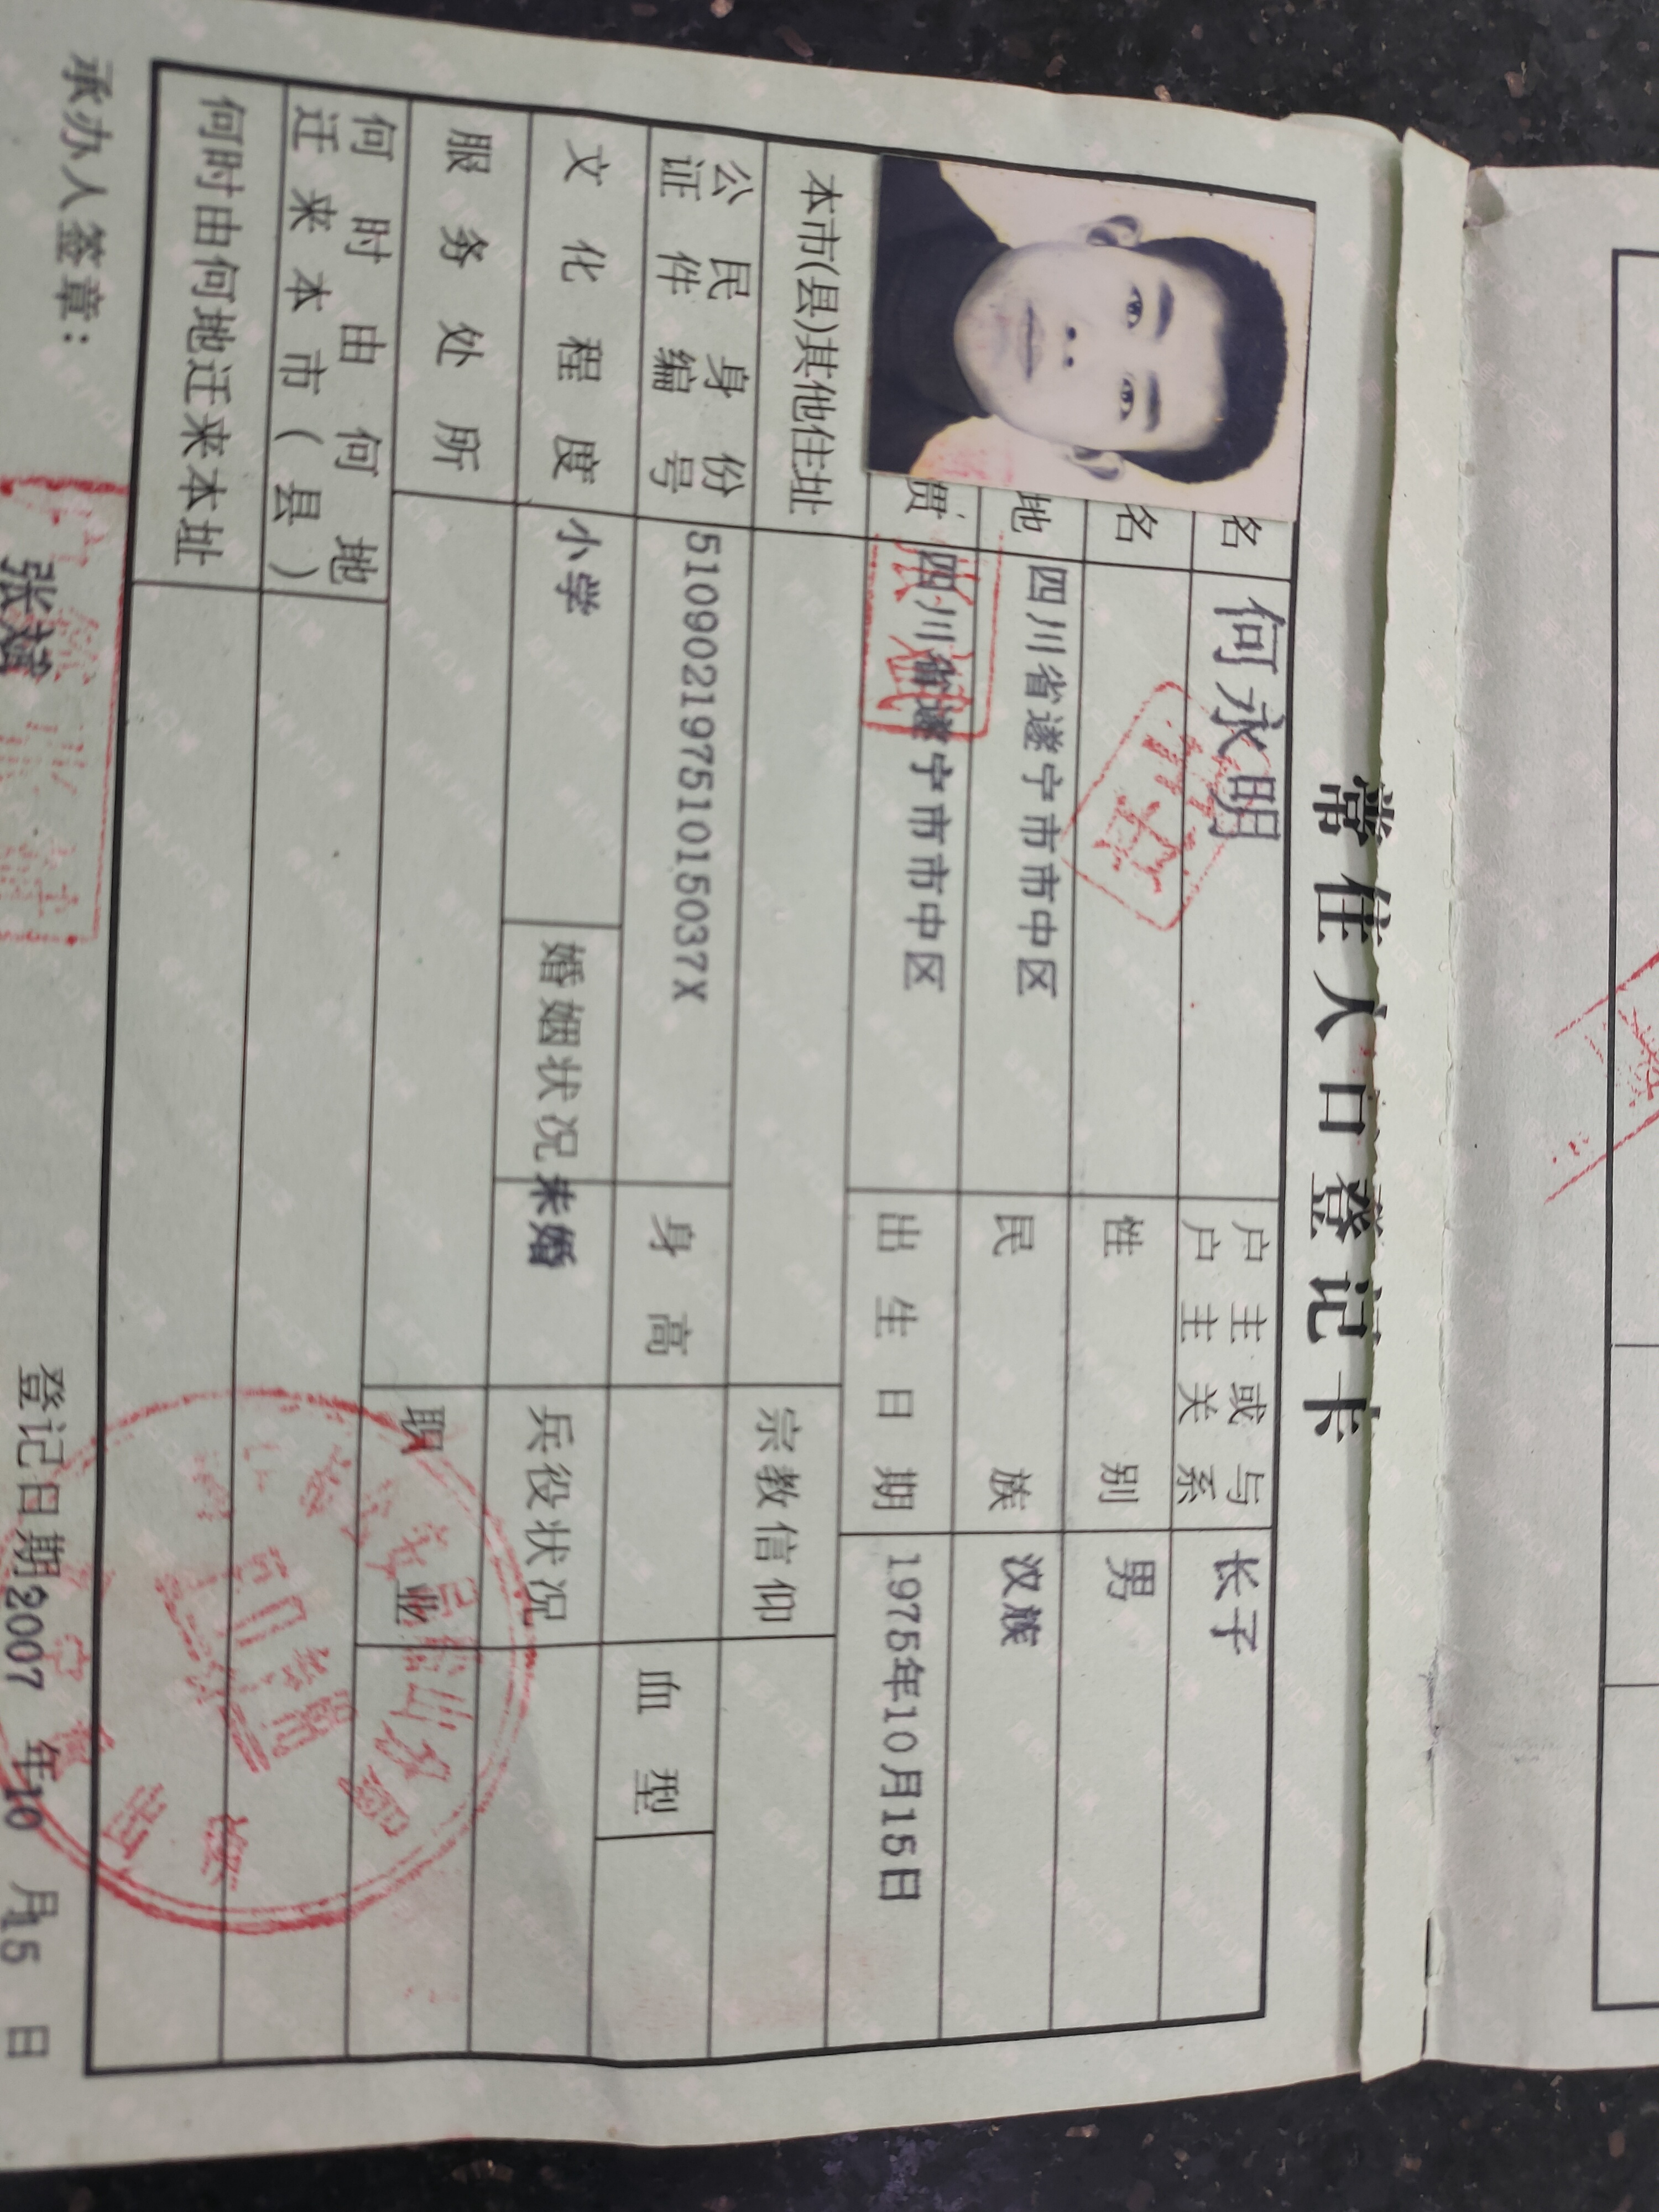 常住人口登记卡
名 何永明 户主或与户主关系 长子
名 性别 男
地 四川省遂宁市市中区 民族 汉族
贯 四川省遂宁市市中区 出生日期 1975年10月15日
本市(县)其他住址 宗教信仰
公民身份证件编号 51090219751015037X 身高 血型
文化程度 小学 婚姻状况 未婚 兵役状况
服务处所 职业
何时由何地迁来本市(县)
何时由何地迁来本址
承办人签章: 张斌 登记日期 2007 年 10 月 15 日